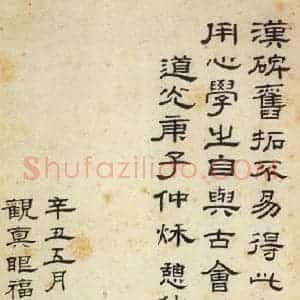 漢碑舊拓不易得此
用心學之自與古會
道光庚子仲秌憩
辛丑五月
觀真眼福
Shufaziliao.COM